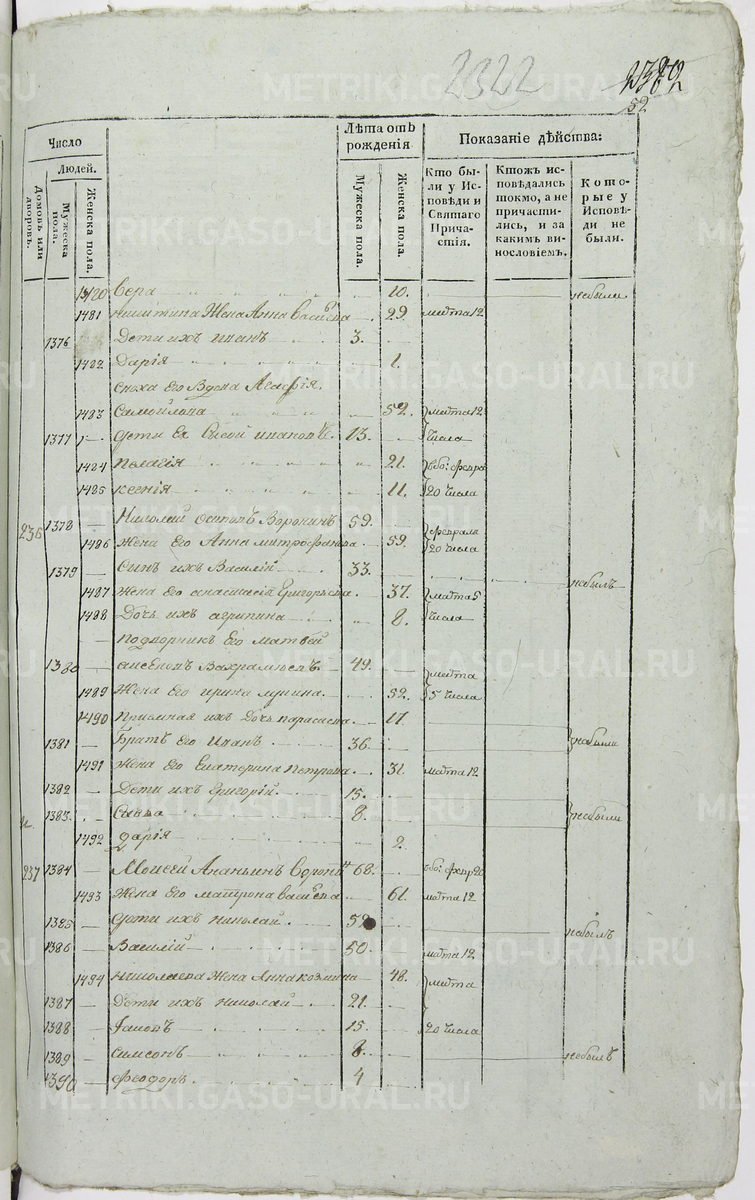 2322
52
Число
Людей.
Домовъ или дворовъ.
Мужеска пола.
Женска пола.
Лѣта отъ рожденія
Мужеска пола.
Женска пола.
Показаніе дѣйства:
Кто бы-
ли у Ис-
повѣди и
Святаго
Прича-
стія.
Ктожъ ис-
повѣдались
токмо, а не
причасти-
лись, и за
какимъ ви-
нословіемъ.
Кото-
рые у
Исповѣ-
ди не
были.
Вера 10. небыли
1481 Никитина Жена Анна Васильева 29. марта 12
1376 Дети ихъ Иванъ 3.
1482 Дарія 1.
Сноха Его Вдова Агафія
1483 Самойлова 52. марта 12
1377 Дети Ея Сысой Ивановъ 13. числа
1484 Пелагія 21.
1485 Ксенія 11. 20 числа
236 1378 Николай Осиповъ Воронинъ 59. февраля
1486 Жена Его Анна Митрофанова 59. 20 числа
1379 Сынъ ихъ Василій 33. небылъ
1487 Жена Его Анастасія Григорьева 37. марта 5
1488 Дочь ихъ Агрипина 8. числа
Подворникъ Его Матвей
1380 Вахрамеевъ 49. марта
1489 Жена Его Ирина 52. 5 числа
1490 Приемная ихъ Дочь Парасковья 17.
1381 Братъ Его Иванъ 36. небыли
1491 Жена Его Екатерина Петрова 31. марта 12
1382 Дети ихъ Григорій 15.
1383 Савва 8. небыли
1492 Дарія 2.
237 1384 Моисей Ананьинъ Воронинъ 68. февр 20
1493 Жена Его Матрона Васильева 61. марта 12
1385 Дети ихъ Николай 52 небылъ
1386 Василій 50. марта 12
1494 Николаева Жена Анна Козмина 48. марта
1387 Дети ихъ Николай 21.
1388 15. 20 числа
1389 Симеонъ 8. небылъ
1390 Феодоръ 4
METRIKI.GASO-URAL.RU